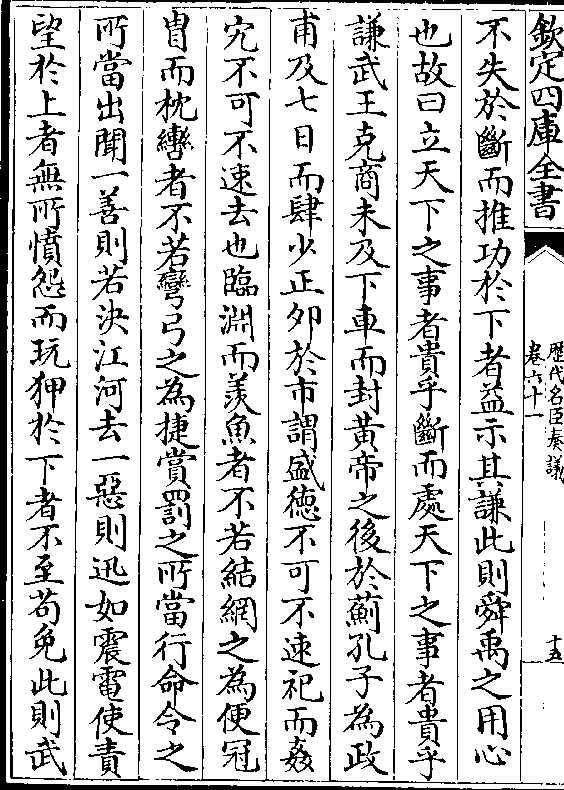 欽定四庫全書
歷代名臣奏議
卷六十一
十五
不失於斷而推功於下者益示其謙此則舜禹之用心
也故曰立天下之事者貴乎斷而處天下之事者貴乎
謙武王克商未及下車而封黃帝之後於薊孔子為政
甫及七日而肆少正夘於市謂盛德不可不速祀而姦
宄不可不速去也臨淵而羡魚者不若結網之為便冠
胄而枕轡者不若彎弓之為捷賞罰之所當行命令之
所當出聞一善則若決江河去一惡則迅如震電使責
望於上者無所憤怨而玩狎於下者不至苟免此則武